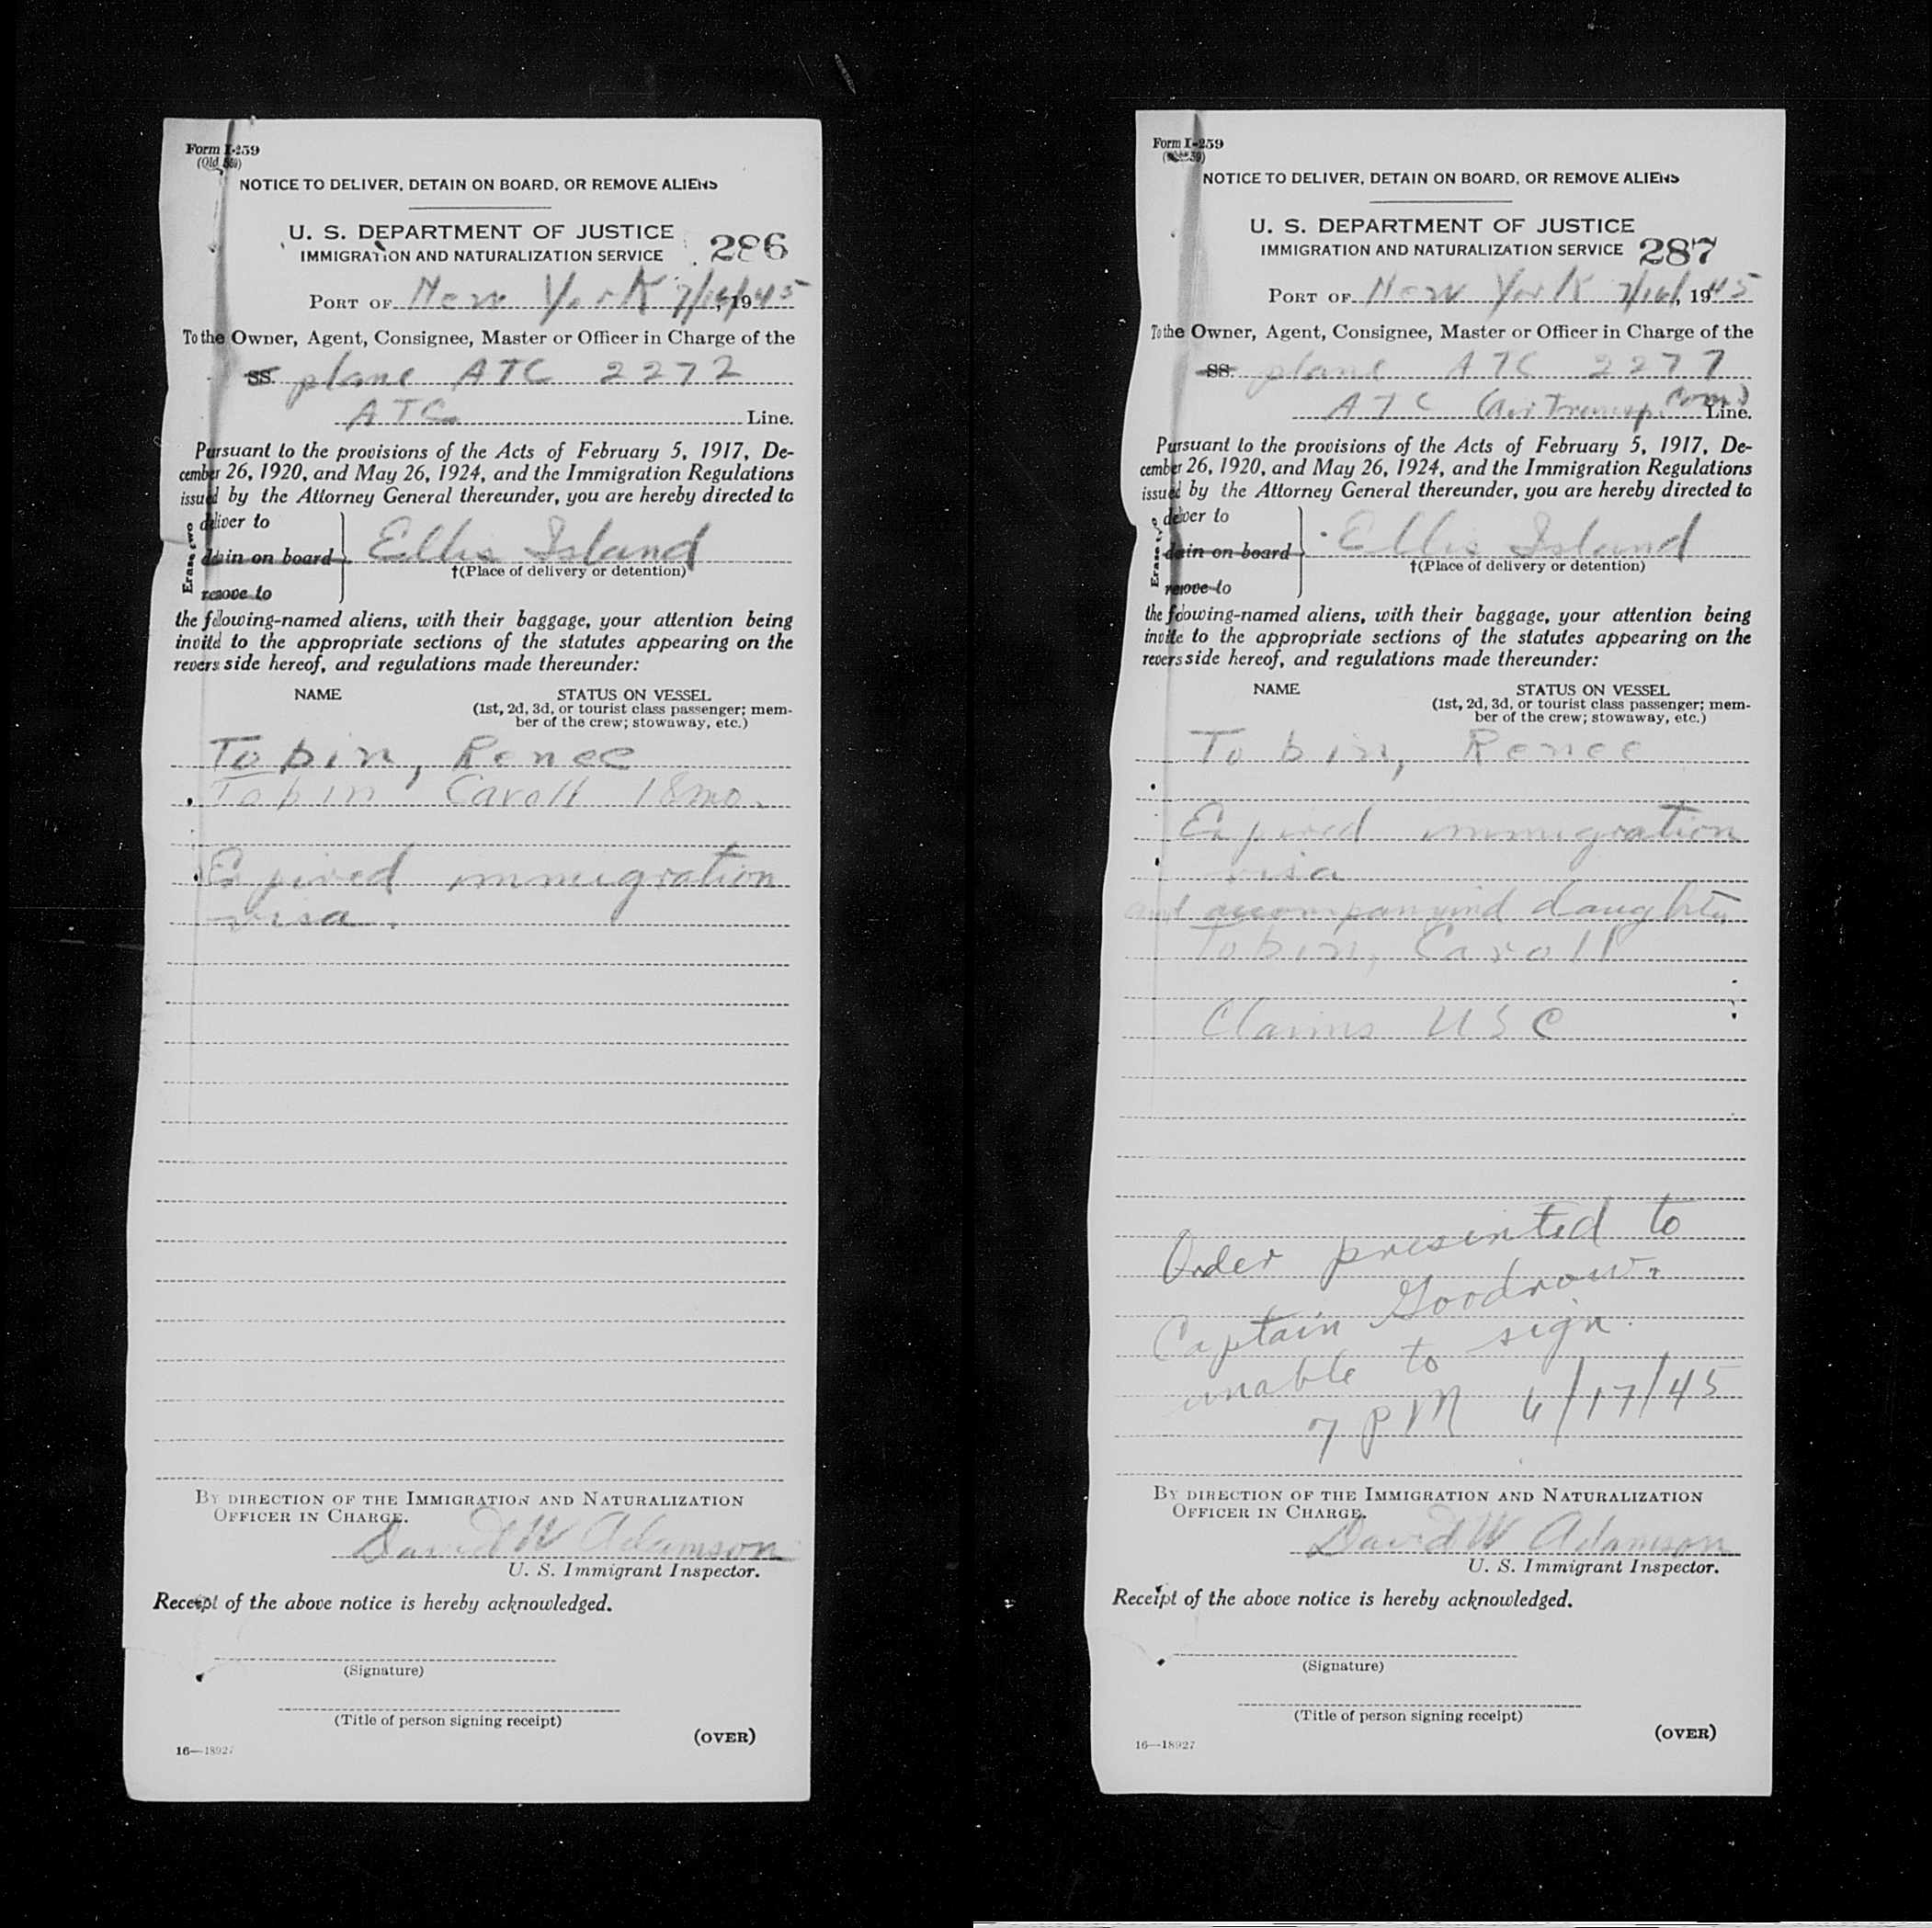 Form I-259
(Old)
NOTICE TO DELIVER, DETAIN ON BOARD, OR REMOVE ALIENS
U. S. DEPARTMENT OF JUSTICE
IMMIGRATION AND NATURALIZATION SERVICE
286
PORT OF New York 7/16/, 1945
To the Owner, Agent, Consignee, Master or Officer in Charge of the
SS. plane ATC 2272
ATC Line.
Pursuant to the provisions of the Acts of February 5, 1917, De-
cember 26, 1920, and May 26, 1924, and the Immigration Regulations
issued by the Attorney General thereunder, you are hereby directed to
Erase two
deliver to
detain on board
remove to
Ellis Island
†(Place of delivery or detention)
the following-named aliens, with their baggage, your attention being
invited to the appropriate sections of the statutes appearing on the
reverse side hereof, and regulations made thereunder:
NAME STATUS ON VESSEL
(1st, 2d, 3d, or tourist class passenger; mem-
ber of the crew; stowaway, etc.)
Tobin, Renee
Tobin Caroll 18mo.
Expired immigration
visa.
BY DIRECTION OF THE IMMIGRATION AND NATURALIZATION
OFFICER IN CHARGE.
David W Adamson
U. S. Immigrant Inspector.
Receipt of the above notice is hereby acknowledged.
(Signature)
(Title of person signing receipt)
(OVER)
16—18927
Form I-259
NOTICE TO DELIVER, DETAIN ON BOARD, OR REMOVE ALIENS
U. S. DEPARTMENT OF JUSTICE
IMMIGRATION AND NATURALIZATION SERVICE
287
PORT OF New York 7/16/, 1945
To the Owner, Agent, Consignee, Master or Officer in Charge of the
SS. plane ATC 2277
ATC (Air Transp. Com) Line.
Pursuant to the provisions of the Acts of February 5, 1917, De-
cember 26, 1920, and May 26, 1924, and the Immigration Regulations
issued by the Attorney General thereunder, you are hereby directed to
Erase two
deliver to
detain on board
remove to
Ellis Island
†(Place of delivery or detention)
the following-named aliens, with their baggage, your attention being
invite to the appropriate sections of the statutes appearing on the
revers side hereof, and regulations made thereunder:
NAME STATUS ON VESSEL
(1st, 2d, 3d, or tourist class passenger; mem-
ber of the crew; stowaway, etc.)
Tobin, Renee
Expired immigration
visa
and accompanyind daughter
Tobin, Caroll
Claims USC
Order presented to
Captain Goodrow.
unable to sign.
7 PM 6/17/45
BY DIRECTION OF THE IMMIGRATION AND NATURALIZATION
OFFICER IN CHARGE.
David W Adamson
U. S. Immigrant Inspector.
Receipt of the above notice is hereby acknowledged.
(Signature)
(Title of person signing receipt)
(OVER)
16—18927